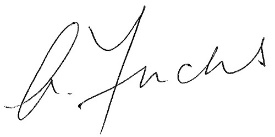 A. Fuchs